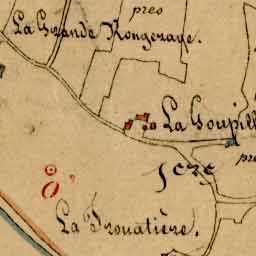 pres
La Grande Rongeraye.
La Goupill
pre
1ere
8'
La Trouatière.